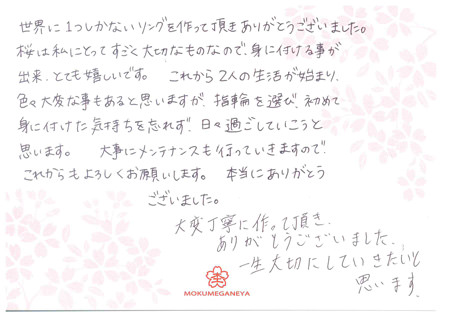 世界に1つしかないリングを作って頂きありがとうございました。
桜は私にとってすごく大切なものなので、身に付ける事が
出来、とても嬉しいです。 これから2人の生活が始まり、
色々大変な事もあると思いますが、指輪を選び、初めて
身に付けた気持ちを忘れず、日々過ごしていこうと
思います。 大事にメンテナンスも行っていきますので、
これからもよろしくお願いします。 本当にありがとう
ございました。
大変丁寧に作って頂き、
ありがとうございました。
一生大切にしていきたいと
思います。
MOKUMEGANEYA